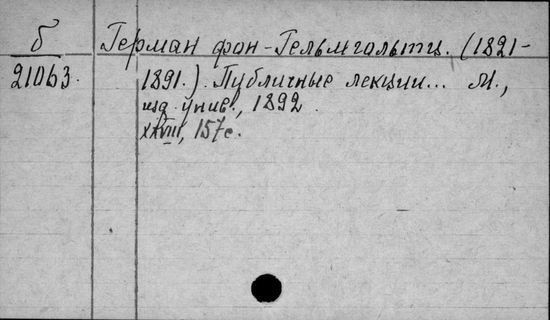 б Герман фон-Гельмгольтц. (1821-
21063. 1891.). Публичные лекции... М.,
изд. унив., 1892.
XXVIII, 157с.